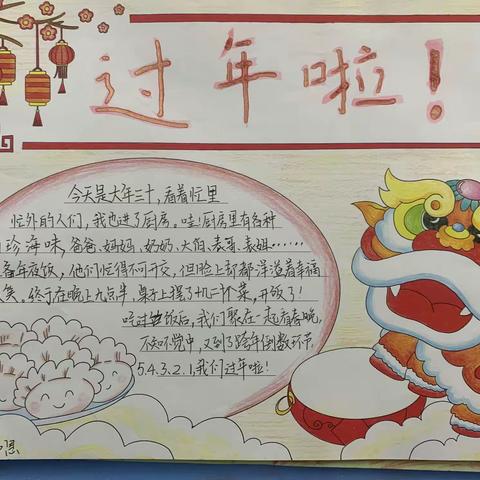 过年啦!
今天是大年三十,看着忙里
忙外的人们,我也进了厨房。哇!厨房里有各种
珍海味,爸爸、妈妈、奶奶、大伯、表哥、表姐……
备年夜饭,他们忙得不可开交,但脸上却都洋溢着幸福
笑。终于在晚上九点半,桌子上摆了十几二十菜,开饭了!
吃过饭后,我们聚在一起看春晚,
不知不觉中,又到了跨年倒数环节,
5.4.3.2.1,我们过年啦!
恩